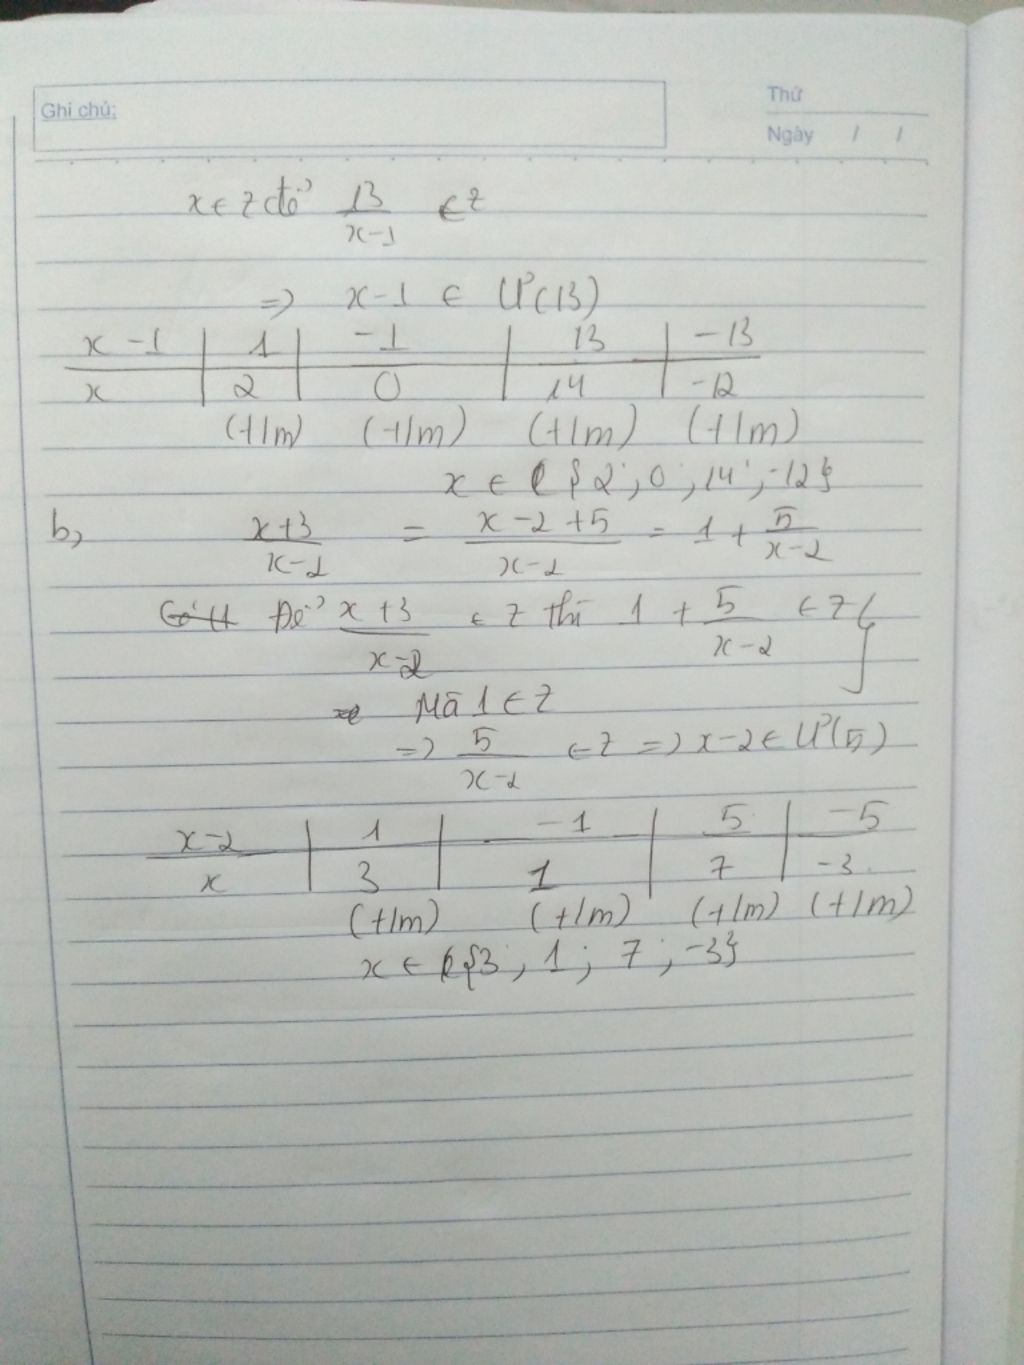 Ghi chú:
Thứ
Ngày / /
x ∈ Z để 13/(x-1) ∈ Z
=> x-1 ∈ Ư(13)
x-1 | 1 | -1 | 13 | -13
x | 2 | 0 | 14 | -12
(t/m) (t/m) (t/m) (t/m)
x ∈ {2; 0; 14; -12}
b, (x+3)/(x-2) = (x-2+5)/(x-2) = 1 + 5/(x-2)
Để (x+3)/(x-2) ∈ Z thì 1 + 5/(x-2) ∈ Z
Mà 1 ∈ Z
=> 5/(x-2) ∈ Z => x-2 ∈ Ư(5)
x-2 | 1 | -1 | 5 | -5
x | 3 | 1 | 7 | -3
(t/m) (t/m) (t/m) (t/m)
x ∈ {3; 1; 7; -3}